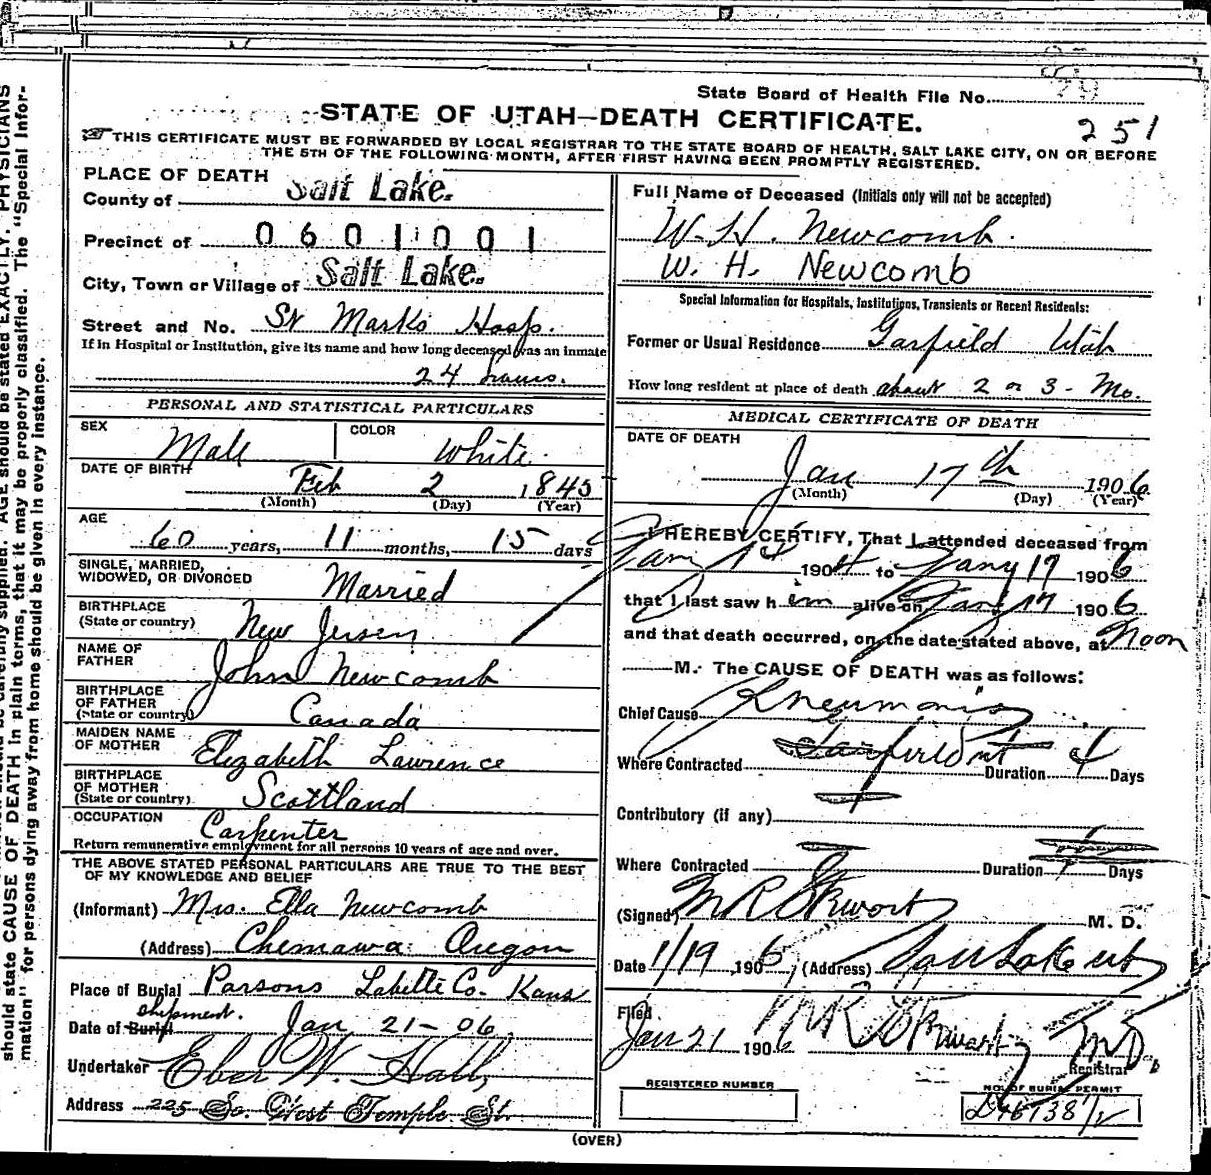 State Board of Health File No.
STATE OF UTAH—DEATH CERTIFICATE.
251
THIS CERTIFICATE MUST BE FORWARDED BY LOCAL REGISTRAR TO THE STATE BOARD OF HEALTH, SALT LAKE CITY, ON OR BEFORE
THE 5TH OF THE FOLLOWING MONTH, AFTER FIRST HAVING BEEN PROMPTLY REGISTERED.
PLACE OF DEATH
County of Salt Lake.
Precinct of 0601001
City, Town or Village of Salt Lake.
Street and No. St Marks Hosp.
If in Hospital or Institution, give its name and how long deceased was an inmate
24 hours.
PERSONAL AND STATISTICAL PARTICULARS
SEX Male COLOR White.
DATE OF BIRTH Feb 2 1845
(Month) (Day) (Year)
AGE
60 years, 11 months, 15 days
SINGLE, MARRIED,
WIDOWED, OR DIVORCED Married
BIRTHPLACE
(State or country) New Jersey
NAME OF
FATHER John Newcomb
BIRTHPLACE
OF FATHER
(State or country) Canada
MAIDEN NAME
OF MOTHER Elizabeth Lawrence
BIRTHPLACE
OF MOTHER
(State or country) Scottland
OCCUPATION Carpenter
Return remunerative employment for all persons 10 years of age and over.
THE ABOVE STATED PERSONAL PARTICULARS ARE TRUE TO THE BEST
OF MY KNOWLEDGE AND BELIEF
(Informant) Mrs. Ella Newcomb
(Address) Chemawa Oregon
Place of Burial Parsons Labette Co. Kans
shipment.
Date of Burial Jan 21-06
Undertaker Eber W. Hall
Address 225 So. West Temple St.
Full Name of Deceased (Initials only will not be accepted)
W. H. Newcomb.
W. H. Newcomb
Special Information for Hospitals, Institutions, Transients or Recent Residents:
Former or Usual Residence Garfield Utah
How long resident at place of death about 2 or 3 - Mo.
MEDICAL CERTIFICATE OF DEATH
DATE OF DEATH
Jan 17th 1906
(Month) (Day) (Year)
I HEREBY CERTIFY, That I attended deceased from
190 to Jany 17 1906
that I last saw him alive on Jany 17 1906
and that death occurred, on the date stated above, at Noon
M. The CAUSE OF DEATH was as follows:
Chief Cause Pneumonia
Where Contracted Garfield Ut Duration 4 Days
Contributory (if any)
Where Contracted Duration Days
(Signed) M R Stewart M. D.
Date 1/19 1906, (Address) Salt Lake Ut
Filed
Jan 21 1906 M R Stewart M.D.
Registrar
REGISTERED NUMBER
NO. OF BURIAL PERMIT
(OVER)
should state CAUSE OF DEATH in plain terms, that it may be properly classified. The "Special Infor-
mation" for persons dying away from home should be given in every instance.
AGE should be stated EXACTLY. PHYSICIANS